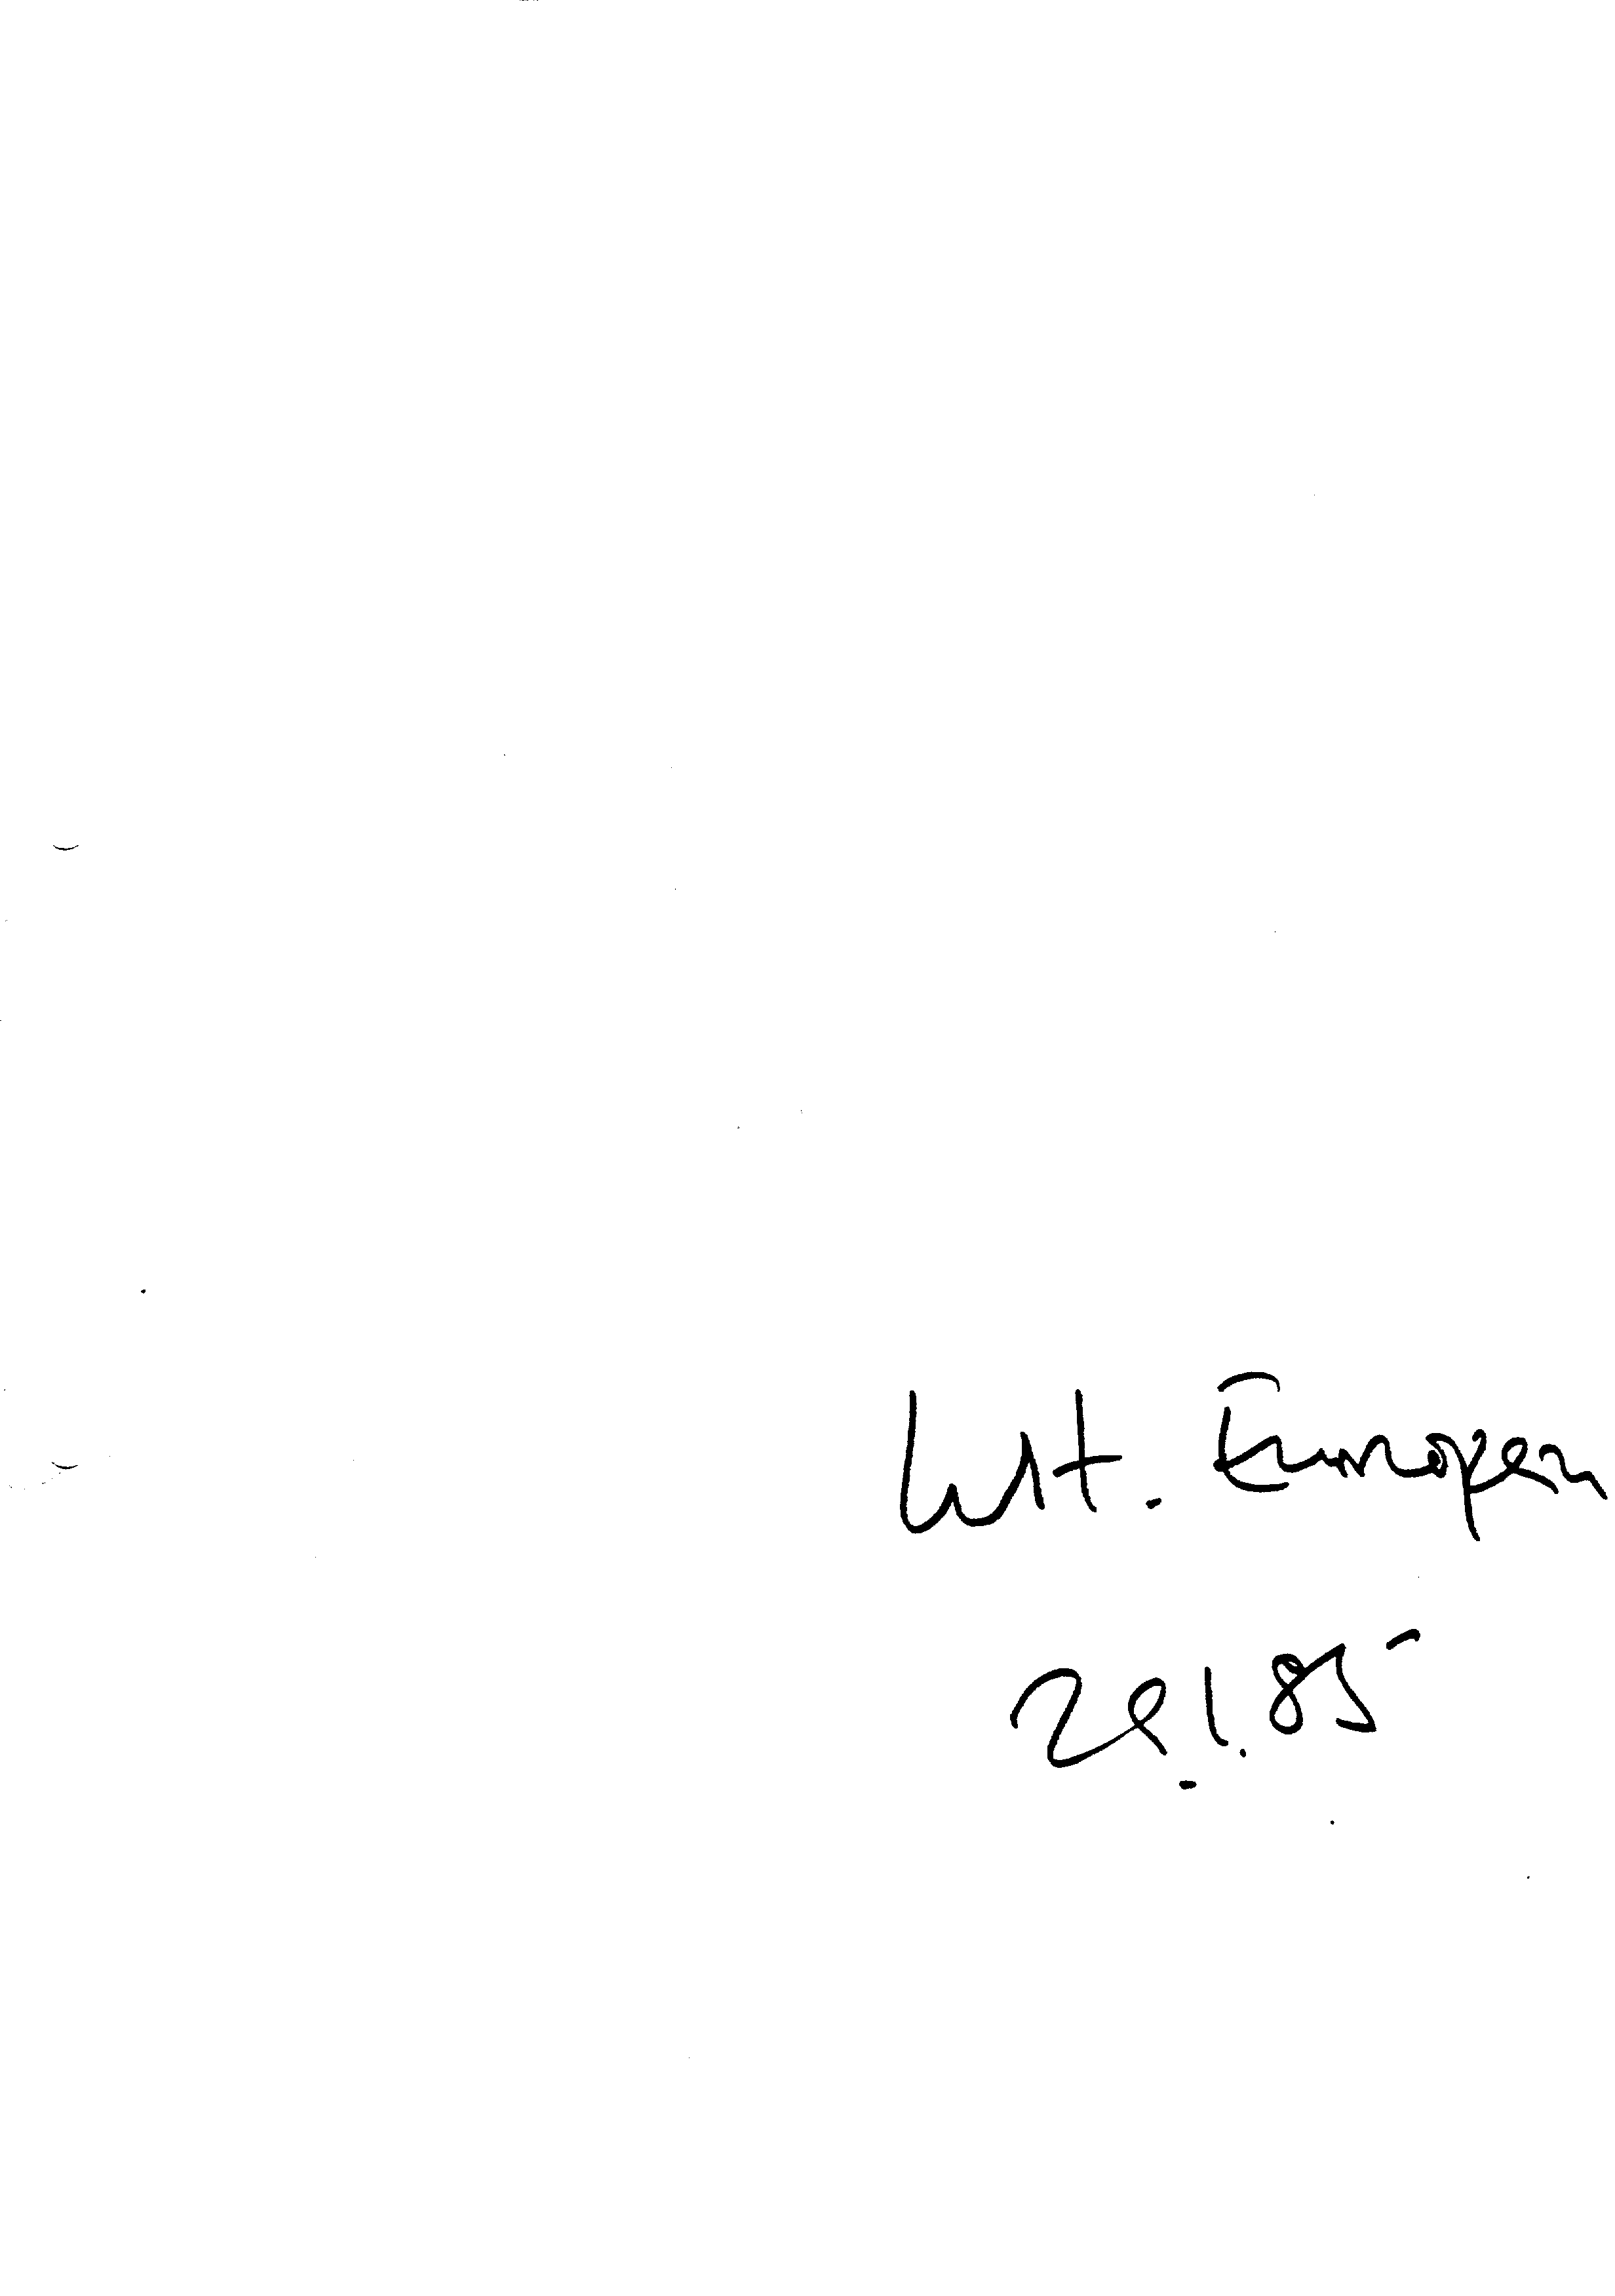 Int. European
29.1.85